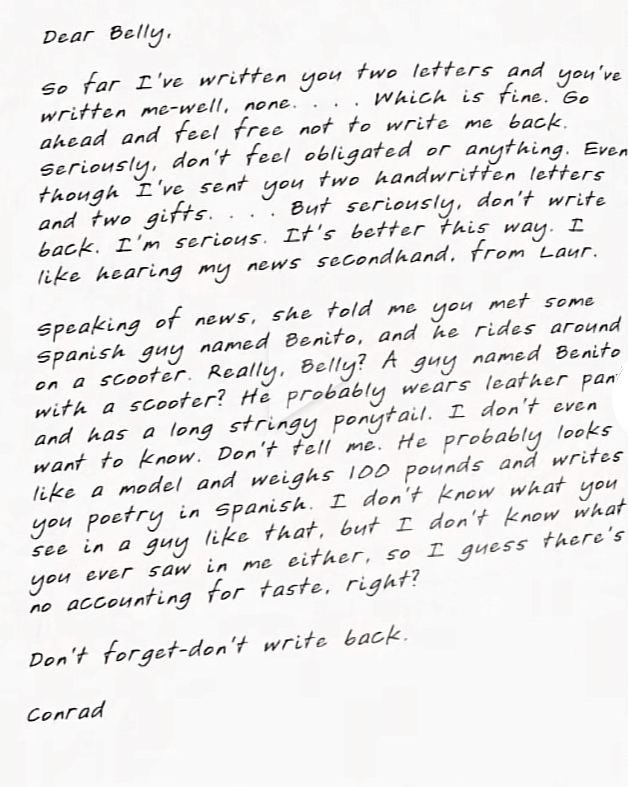 Dear Belly,
So far I've written you two letters and you've
written me-well, none. . . . Which is fine. Go
ahead and feel free not to write me back.
Seriously, don't feel obligated or anything. Even
though I've sent you two handwritten letters
and two gifts. . . . But seriously, don't write
back. I'm serious. It's better this way. I
like hearing my news secondhand, from Laur.
Speaking of news, she told me you met some
Spanish guy named Benito, and he rides around
on a scooter. Really, Belly? A guy named Benito
with a scooter? He probably wears leather pan
and has a long stringy ponytail. I don't even
want to know. Don't tell me. He probably looks
like a model and weighs 100 pounds and writes
you poetry in Spanish. I don't know what you
see in a guy like that, but I don't know what
you ever saw in me either, so I guess there's
no accounting for taste, right?
Don't forget-don't write back.
Conrad